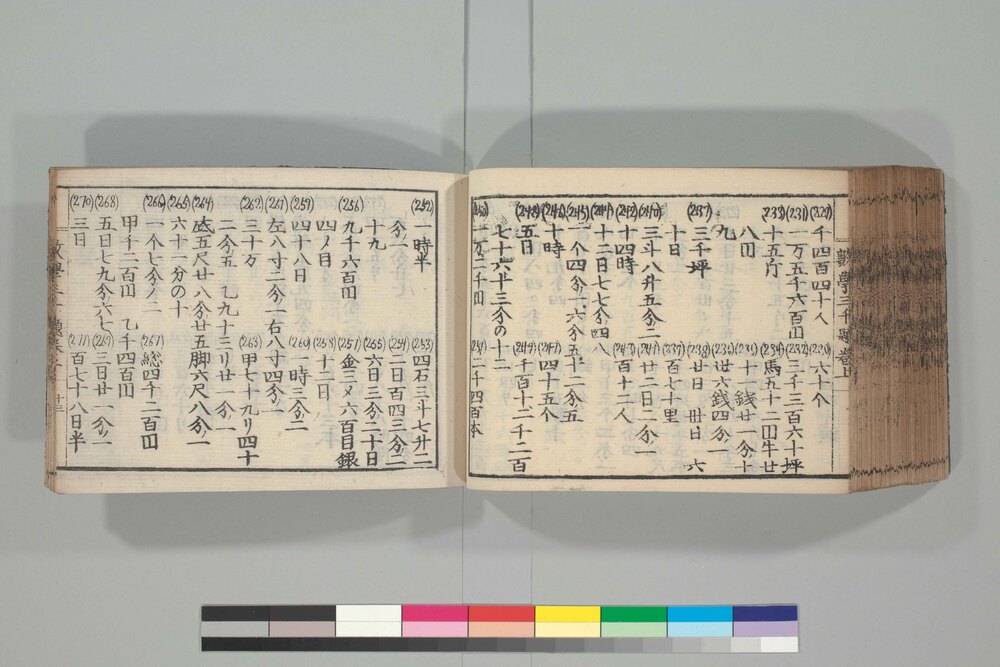 (229) 千四百四十人 (230) 六十个
(231) 一万五千六百山 (232) 三千三百六十坪
(233) 十五斤 (234) 馬五十二円牛廿
八円 (235) 十一銭廿一分十
九 世六銭四分一
(237) 三千坪 (238) 廿日 世日 六
十日 百七十里
(240) 三斗八升五分二 (241) 廿二日二分一
(242) 十四時 (243) 百十二人
(244) 十二日七七分四
(245) 一个四分一、六分五半二分五
(246) 十時 (247) 四十五个
(248) 五日 (249) 千百十二千二百
七十六廿三分の十二
(250) 一万二千円 (251) 二千四百本
(252) 一時半 (253) 四石三斗七升二
分一 (254) 二日百四三分二
十九 (255) 六日三分二十日
(256) 九千六百円 (257) 金三〆六百目銀
四ノ目 (258) 十二日
(259) 四十八日 (260) 一時三分二
(261) 左八寸二分一右八寸四分一
(262) 三十万 (263) 甲七十九リ四十
二分五 乙九十三リ廿一分一
(264) 底五尺廿八分廿五脚六尺八分一
(265) 六十一分の十
(266) 一个七分ノ二 (267) 総四千二百円
甲千二百円 乙千四百円
(268) 五日七九分六七 (269) 三日廿一分一
(270) 三日 (271) 百七十八日半